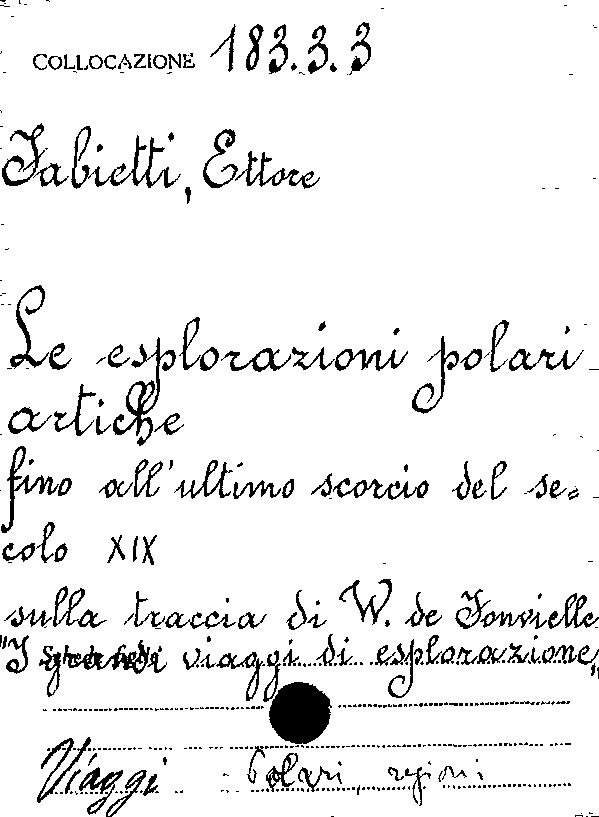 COLLOCAZIONE 183.3.3
Fabietti, Ettore
Le esplorazioni polari
artiche
fino all'ultimo scorcio del se=
colo XIX
sulla traccia di W. de Fonvielle
"I grandi viaggi di esplorazione"
Viaggi Polari, regioni